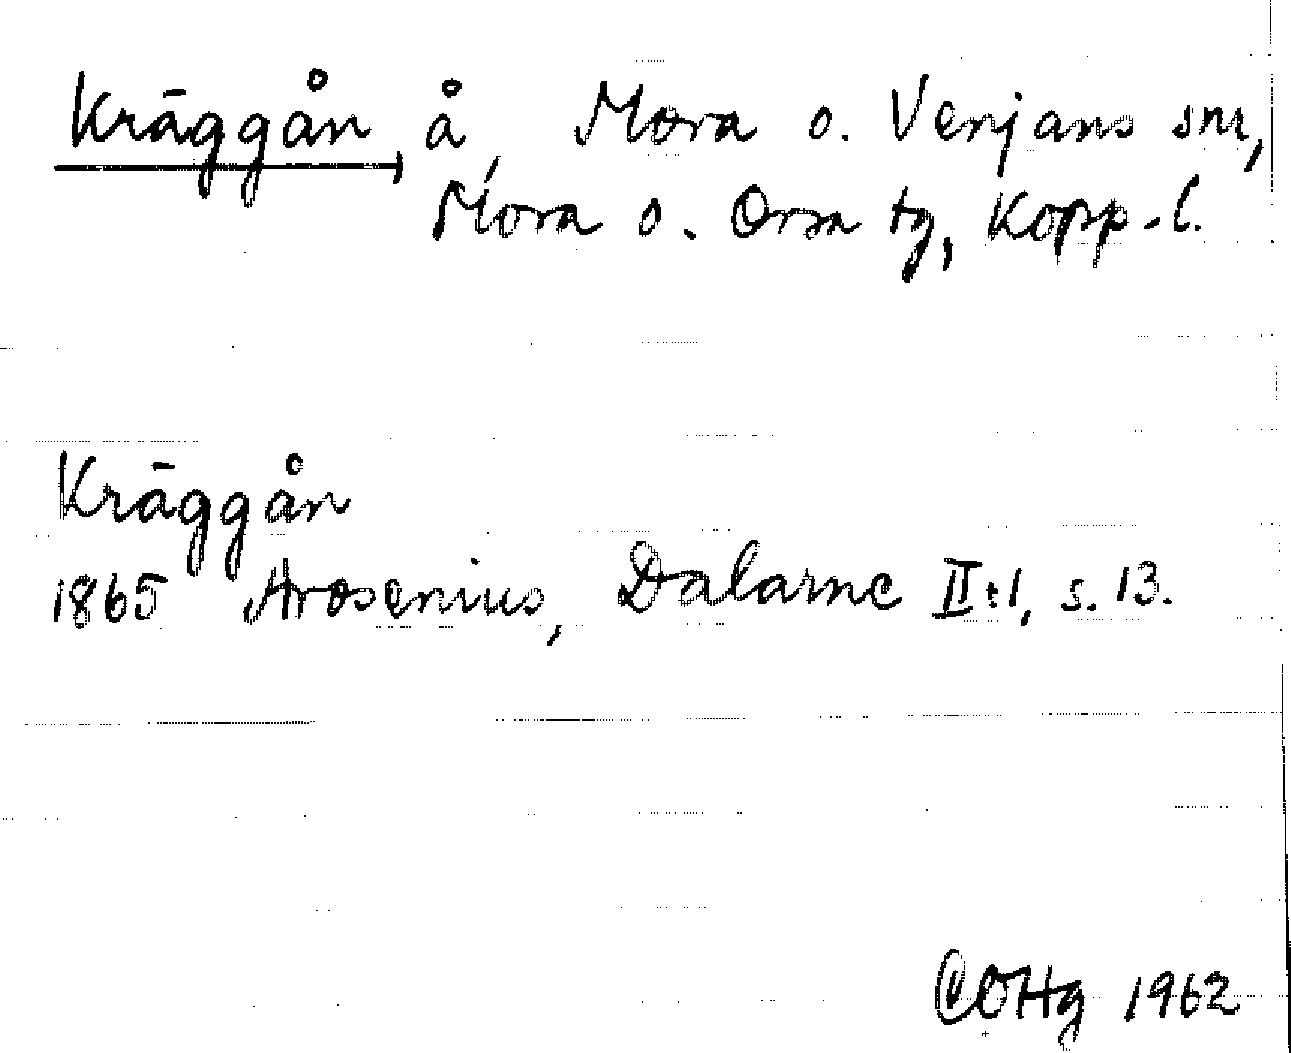 Kräggån, å, Mora o. Venjans snr,
Mora o. Orsa tg, Kopp.l.
Kräggån
1865 Arosenius, Dalarne II:1, s. 13.
COHg 1962